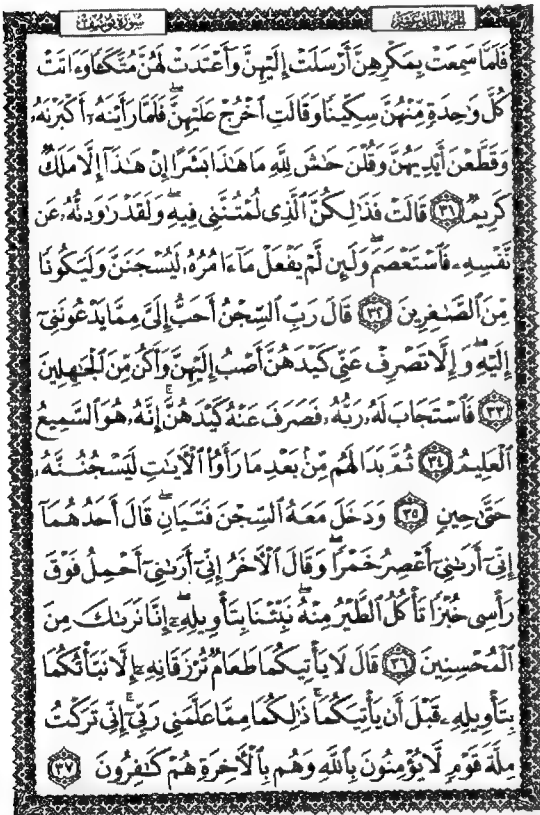 الجزء الثاني عشر
سورة يوسف
فَلَمَّا سَمِعَتْ بِمَكْرِهِنَّ أَرْسَلَتْ إِلَيْهِنَّ وَأَعْتَدَتْ لَهُنَّ مُتَّكَـًٔا وَءَاتَتْ
كُلَّ وَٰحِدَةٍ مِّنْهُنَّ سِكِّينًا وَقَالَتِ ٱخْرُجْ عَلَيْهِنَّ ۖ فَلَمَّا رَأَيْنَهُۥٓ أَكْبَرْنَهُۥ
وَقَطَّعْنَ أَيْدِيَهُنَّ وَقُلْنَ حَـٰشَ لِلَّهِ مَا هَـٰذَا بَشَرًا إِنْ هَـٰذَآ إِلَّا مَلَكٌ
كَرِيمٌ ٣١ قَالَتْ فَذَٰلِكُنَّ ٱلَّذِى لُمْتُنَّنِى فِيهِ ۖ وَلَقَدْ رَٰوَدتُّهُۥ عَن
نَّفْسِهِۦ فَٱسْتَعْصَمَ ۖ وَلَئِن لَّمْ يَفْعَلْ مَآ ءَامُرُهُۥ لَيُسْجَنَنَّ وَلَيَكُونًا
مِّنَ ٱلصَّـٰغِرِينَ ٣٢ قَالَ رَبِّ ٱلسِّجْنُ أَحَبُّ إِلَىَّ مِمَّا يَدْعُونَنِىٓ
إِلَيْهِ ۖ وَإِلَّا تَصْرِفْ عَنِّى كَيْدَهُنَّ أَصْبُ إِلَيْهِنَّ وَأَكُن مِّنَ ٱلْجَـٰهِلِينَ
٣٣ فَٱسْتَجَابَ لَهُۥ رَبُّهُۥ فَصَرَفَ عَنْهُ كَيْدَهُنَّ ۚ إِنَّهُۥ هُوَ ٱلسَّمِيعُ
ٱلْعَلِيمُ ٣٤ ثُمَّ بَدَا لَهُم مِّنۢ بَعْدِ مَا رَأَوُا۟ ٱلْـَٔايَـٰتِ لَيَسْجُنُنَّهُۥ
حَتَّىٰ حِينٍ ٣٥ وَدَخَلَ مَعَهُ ٱلسِّجْنَ فَتَيَانِ ۖ قَالَ أَحَدُهُمَآ
إِنِّىٓ أَرَىٰنِىٓ أَعْصِرُ خَمْرًا ۖ وَقَالَ ٱلْـَٔاخَرُ إِنِّىٓ أَرَىٰنِىٓ أَحْمِلُ فَوْقَ
رَأْسِى خُبْزًا تَأْكُلُ ٱلطَّيْرُ مِنْهُ ۖ نَبِّئْنَا بِتَأْوِيلِهِۦٓ ۖ إِنَّا نَرَىٰكَ مِنَ
ٱلْمُحْسِنِينَ ٣٦ قَالَ لَا يَأْتِيكُمَا طَعَامٌ تُرْزَقَانِهِۦٓ إِلَّا نَبَّأْتُكُمَا
بِتَأْوِيلِهِۦ قَبْلَ أَن يَأْتِيَكُمَا ۚ ذَٰلِكُمَا مِمَّا عَلَّمَنِى رَبِّىٓ ۚ إِنِّى تَرَكْتُ
مِلَّةَ قَوْمٍ لَّا يُؤْمِنُونَ بِٱللَّهِ وَهُم بِٱلْـَٔاخِرَةِ هُمْ كَـٰفِرُونَ ٣٧